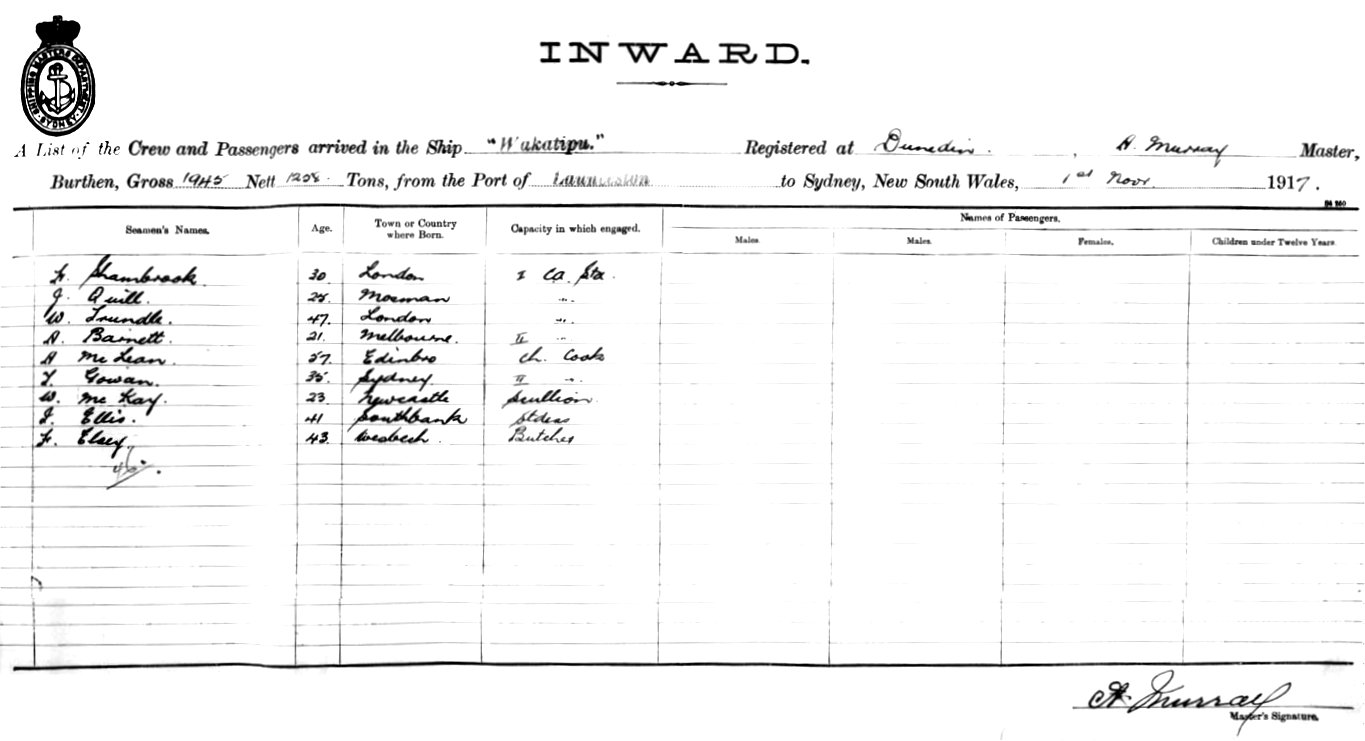 SHIPPING MASTERS DEPARTMENT SYDNEY
INWARD.
A List of the Crew and Passengers arrived in the Ship "Wakatipu." Registered at Dunedin. , A. Murray Master,
Burthen, Gross 1945 Nett 1258 Tons, from the Port of Launceston to Sydney, New South Wales, 1st Novr 1917.
Names of Passengers.
Seamen's Names. Age. Town or Country where Born. Capacity in which engaged. Males. Males. Females. Children under Twelve Years.
F. Shambrook 30 London I Ca. Std.
J. Quill. 25 Mosman "
W. Trundle. 47. London "
A. Barnett. 21. Melbourne. II "
A McLean. Edinbro Ch. Cook
Gowan. 35. Sydney II "
W. McKay. 23 Newcastle Scullion
Ellis. 41 Southbank Stdess
F. Elsey. 43. Wesbech. Butcher
46.
A. Murray
Master's Signature.